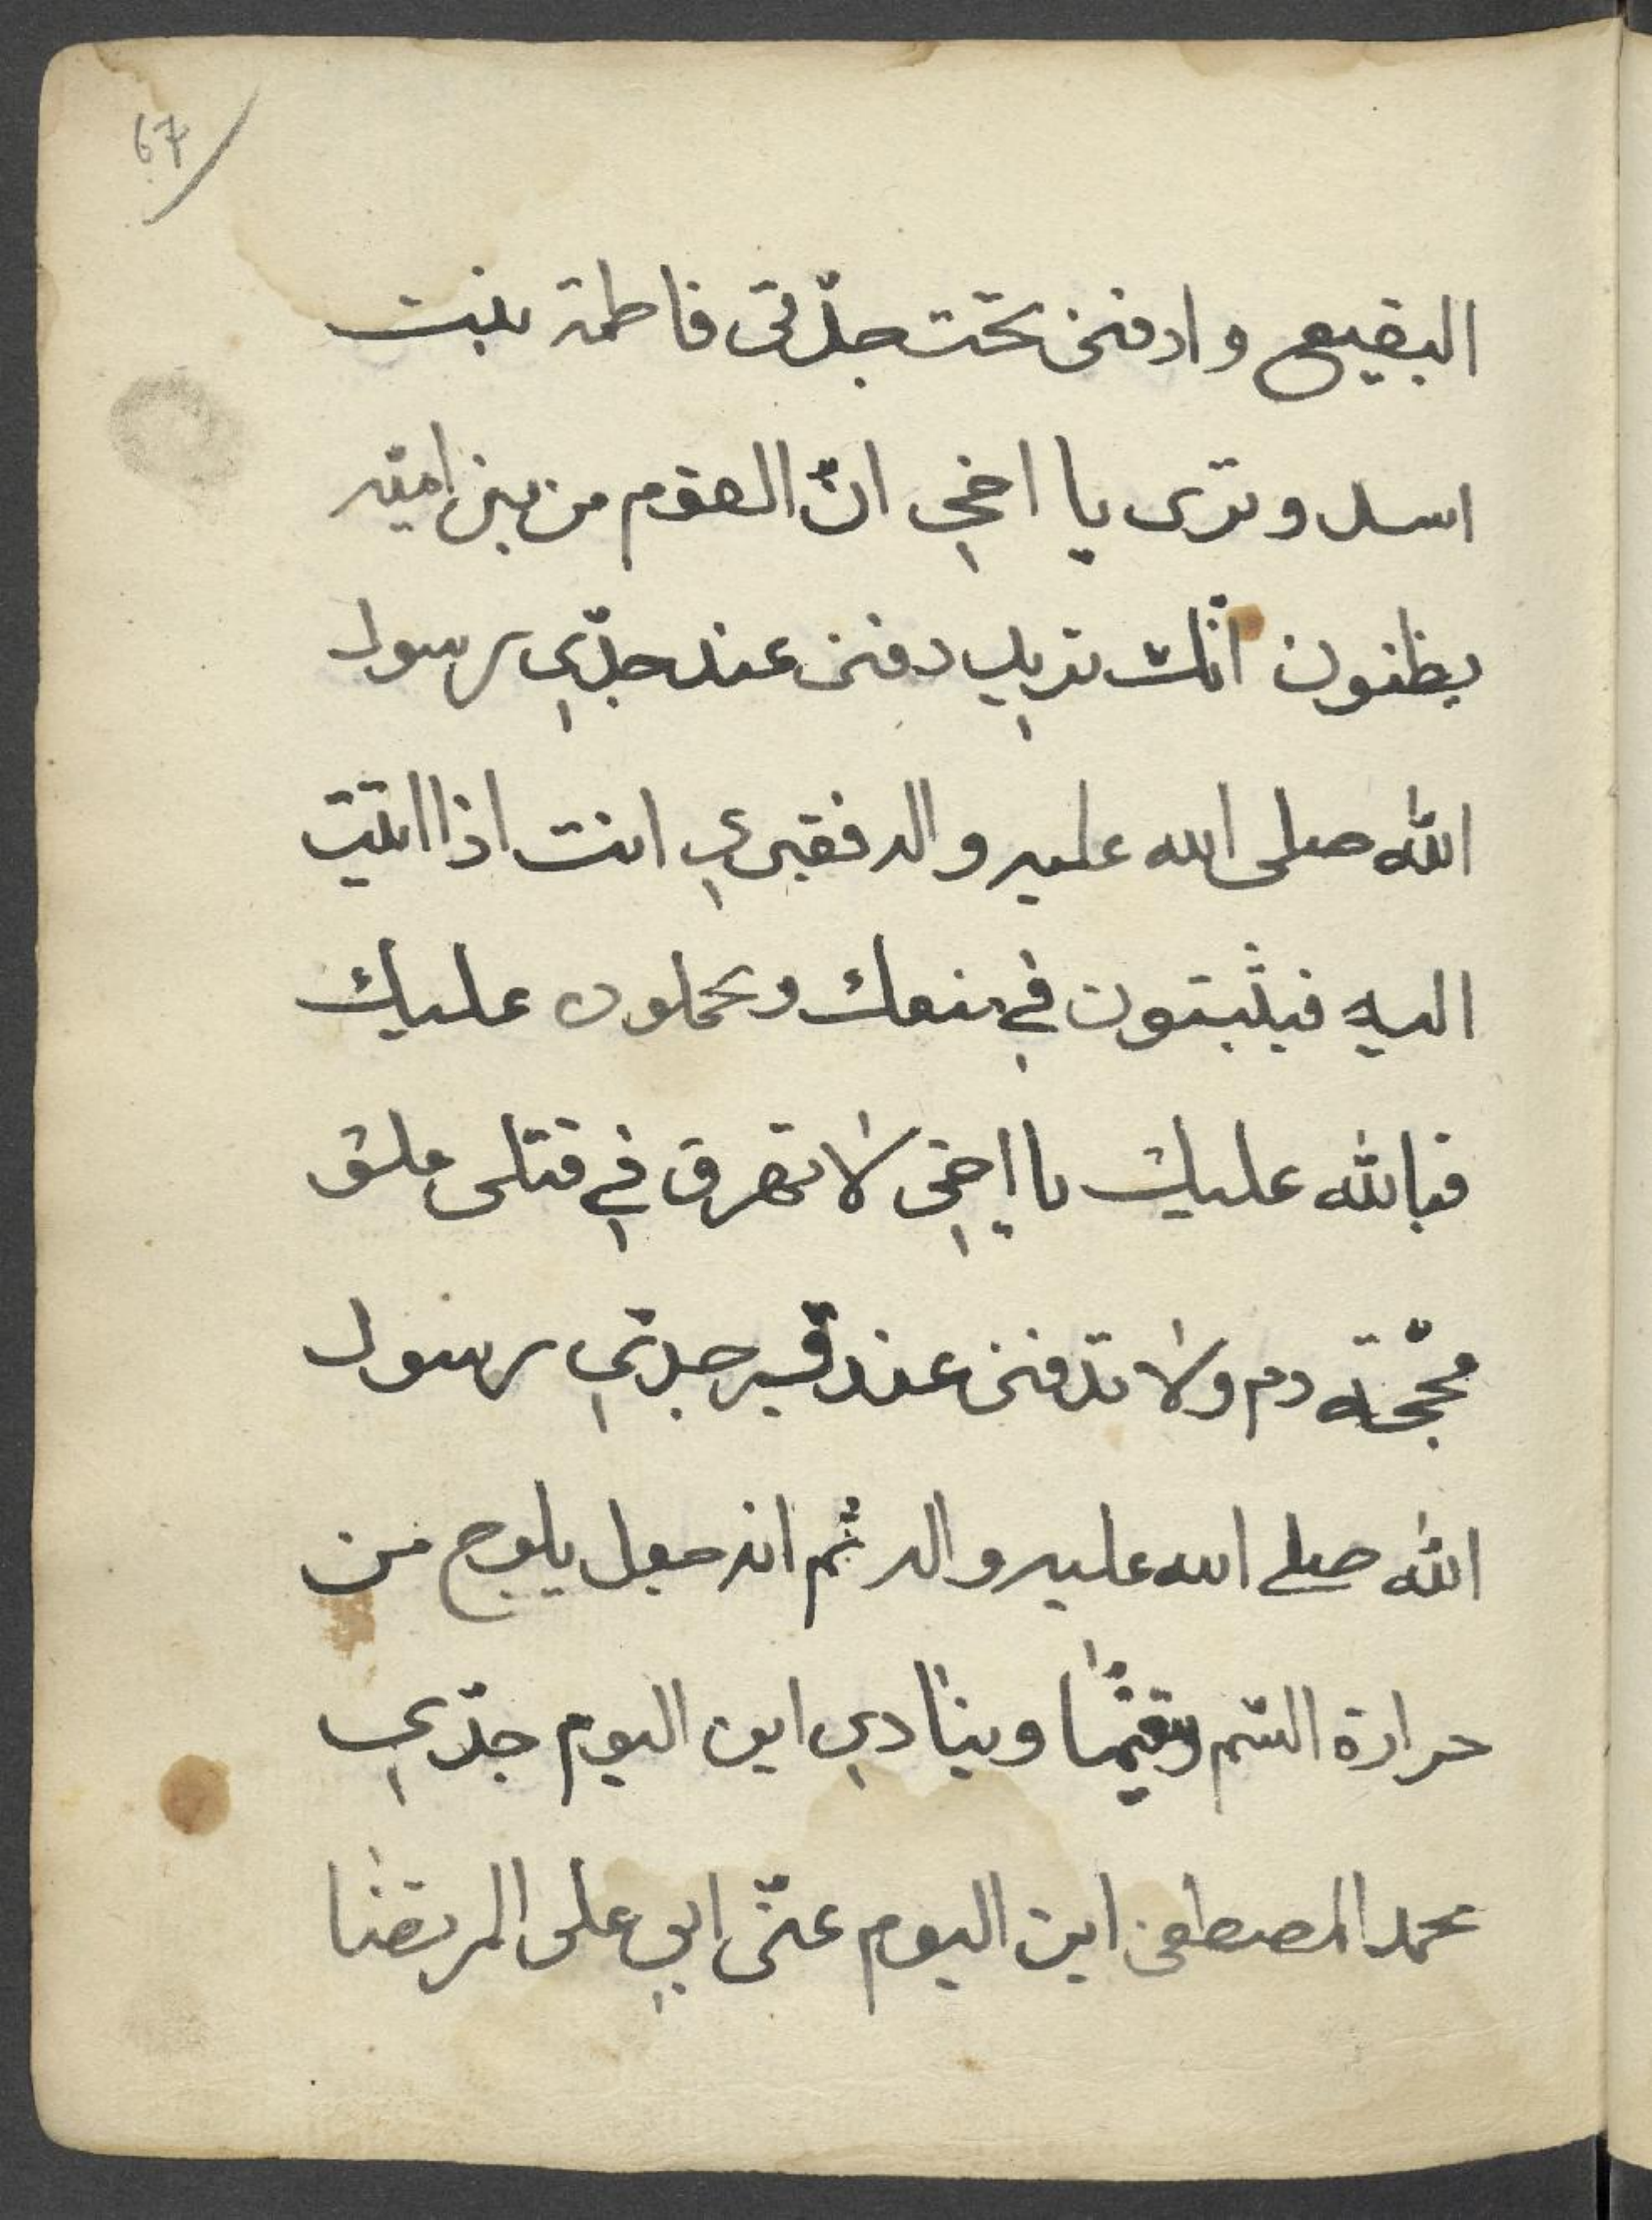 67
البقيع وادفنى تحت جدّتى فاطمة بنت
اسد وترى يا اخي انّ القوم من بنى اميّه
يظنون انّك تريد دفنى عند جدّي رسول
الله صلى الله عليه واله فقبرى انت اذا اتيت
اليه فيثبتون في منعك ويحملون عليك
فبالله عليك يا اخى لا تهرق في قتلى ملئ
محجّة دم ولا تدفنى عند قبر جدّي رسول
الله صلى الله عليه واله ثم انه جعل يلوج من
حرارة السّم ويقيّا وينادي اين اليوم جدّي
محمد المصطفى اين اليوم عنّى ابي على المرتضا